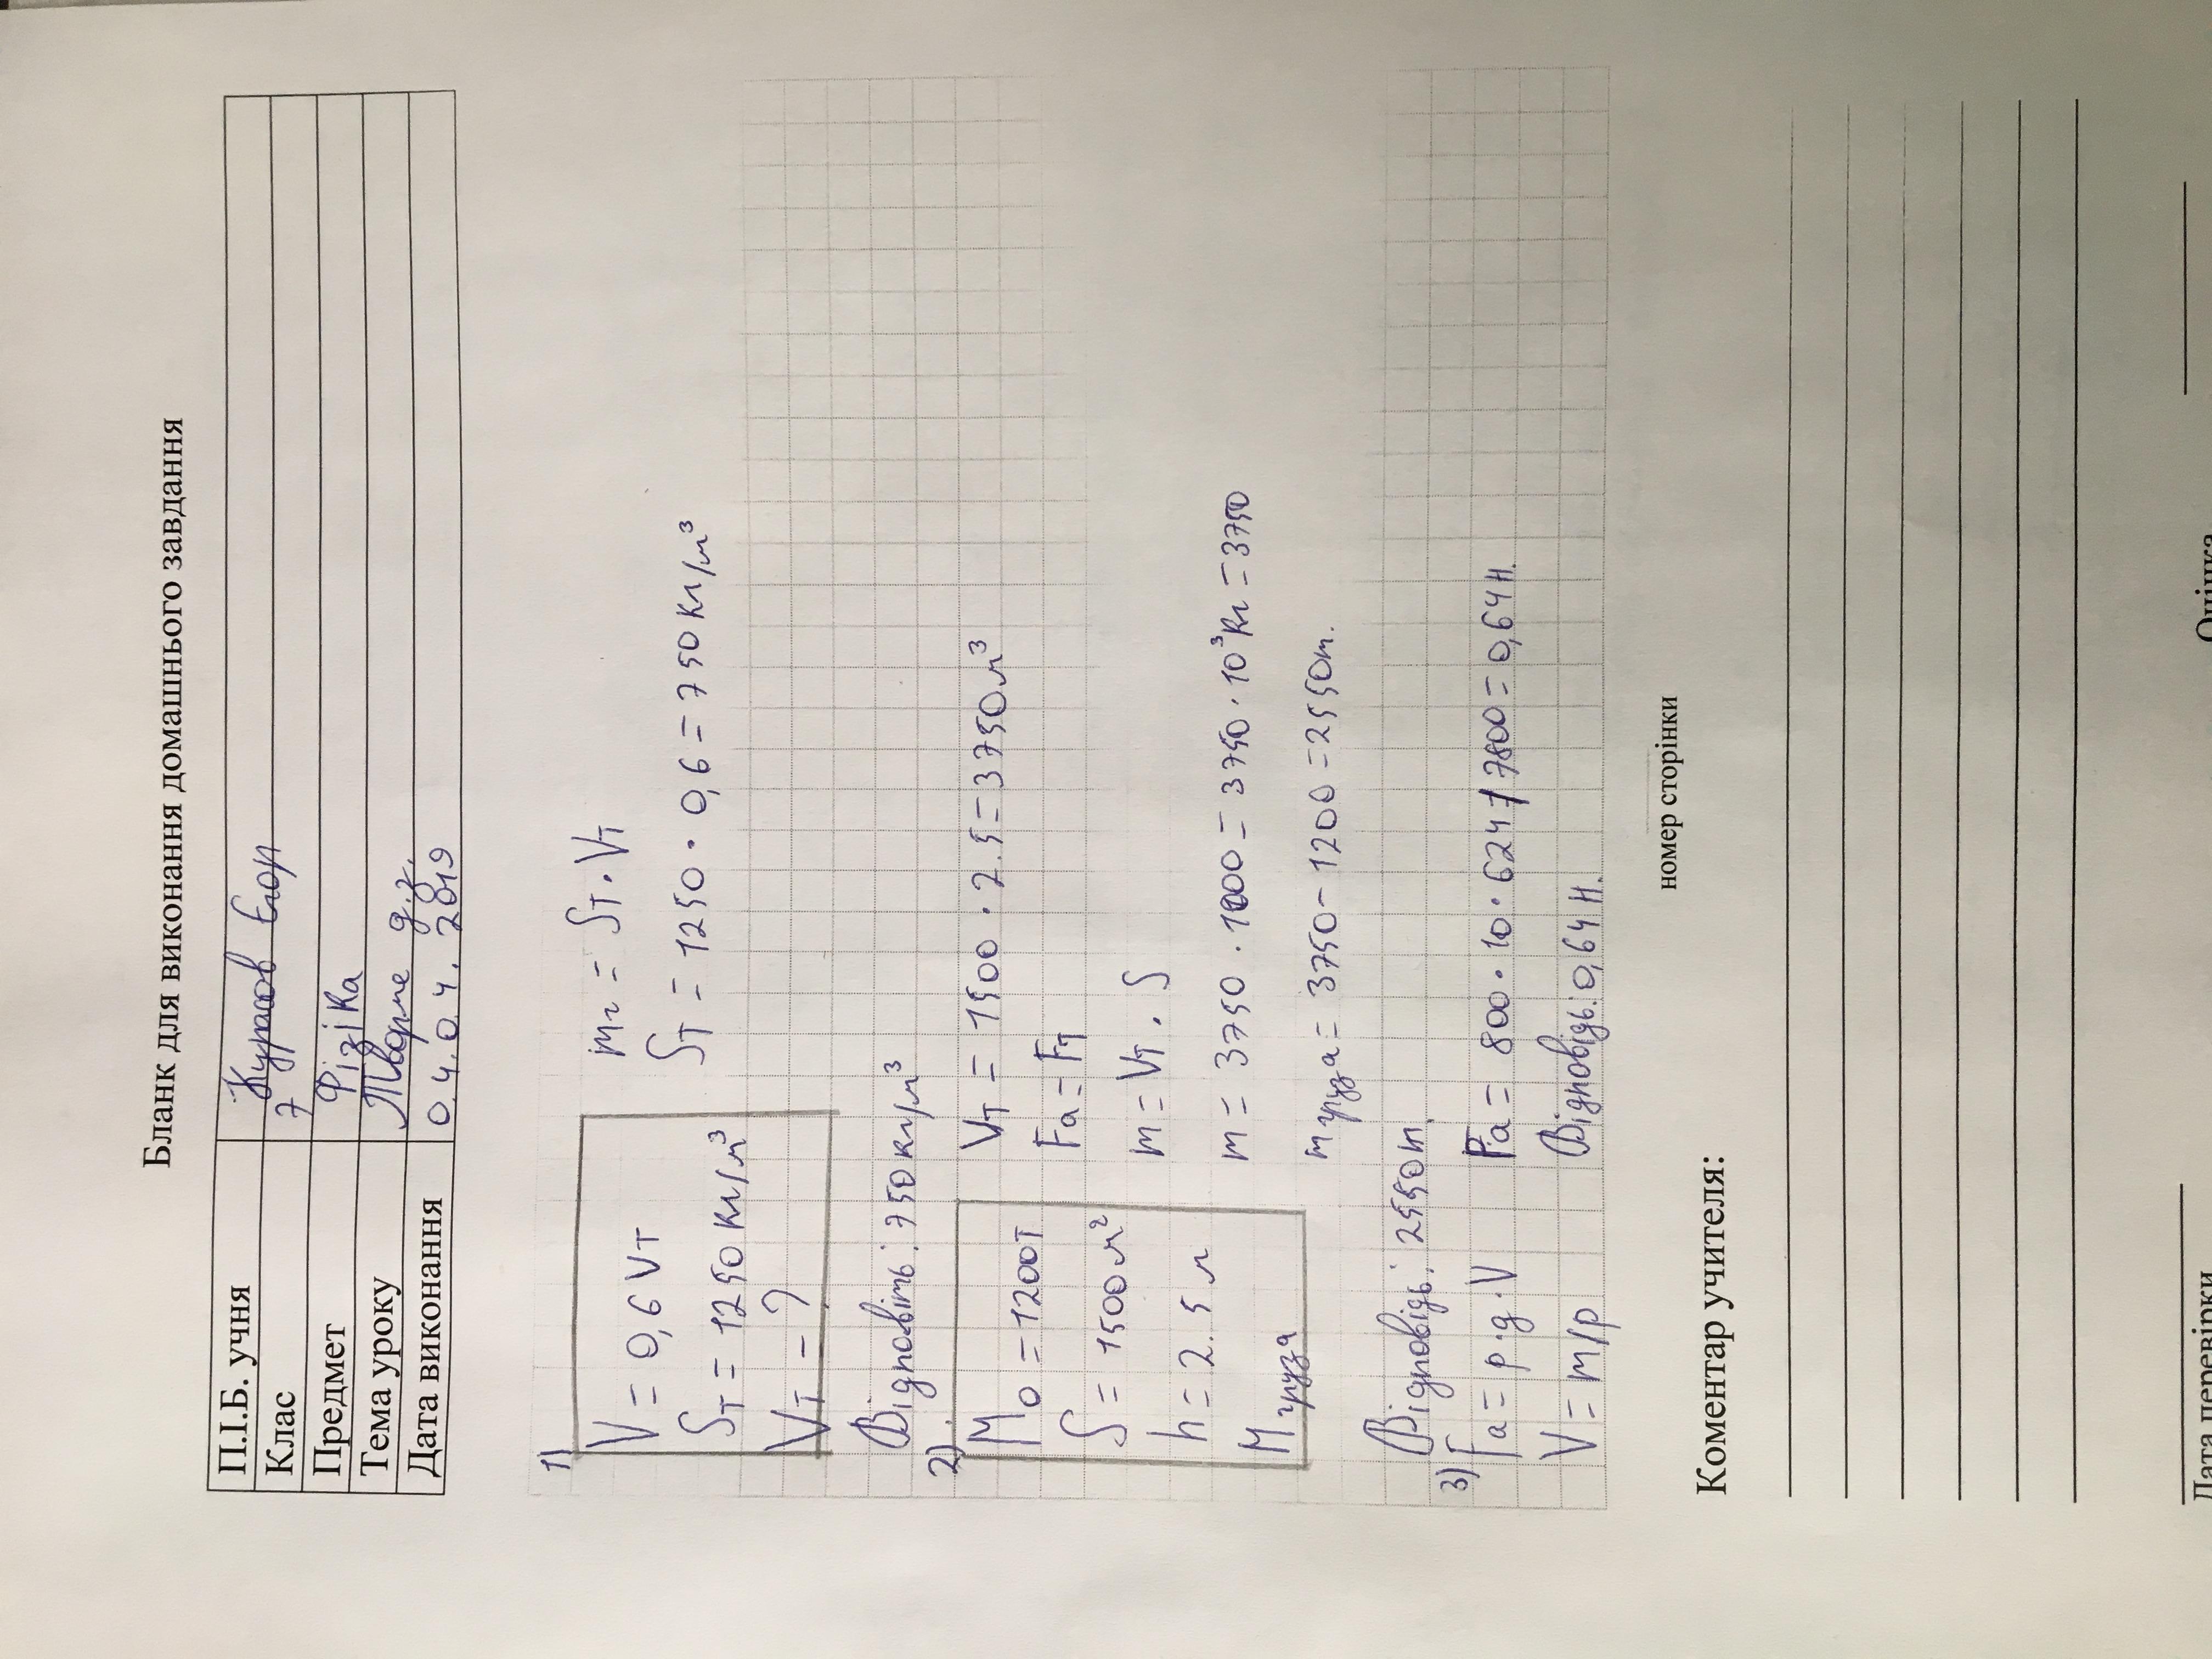 Бланк для виконання домашнього завдання
П.І.Б. учня Курасов Егор
Клас 7
Предмет Фізіка
Тема уроку Творче д.з.
Дата виконання 0.4.0.4.2019
1)
V = 0,6 Vт
ρт = 1250 кг/м³
Vт – ?
mт = ρт · Vт
ρт = 1250 · 0,6 = 750 кг/м³
Відповіть: 750 кг/м³
2)
M₀ = 1200т
S = 1500 м²
h = 2.5 м
M груза
Vт = 1500 · 2.5 = 3750 м³
Fа = Fт
m = Vт · ρ
m = 3750 · 1000 = 3750 · 10³ кг = 3750
m груза = 3750 – 1200 = 2550т.
Відповідь: 2550т.
3) Fа = p·g·V
V = m/p
Fа = 800 · 10 · 624 / 7800 = 0,64 Н.
Відповідь: 0,64 Н.
номер сторінки
Коментар учителя:
Дата перевірки
Оцінка